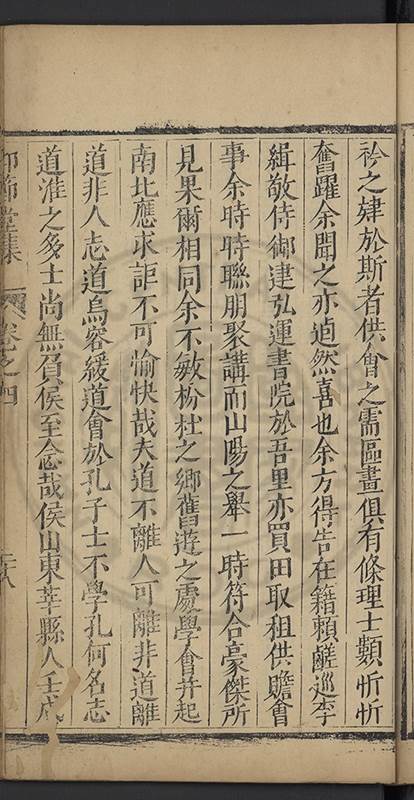 衿之肄於斯者供會之需區畫俱有條理士類忻忻
奮躍余聞之亦逌然喜也余方得告在籍賴鹺巡李
緝敬侍御建弘運書院於吾里亦買田取租供贍會
事余時時聯朋聚講而山陽之舉一時符合豪傑所
見果爾相同余不敏枌社之鄉舊遊之處學會并起
南北應求詎不可愉快哉夫道不離人可離非道離
道非人志道烏容緩道會於孔子士不學孔何名志
道淮之多士尚無負侯至念哉侯山東莘縣人壬戌
堂集
卷之四